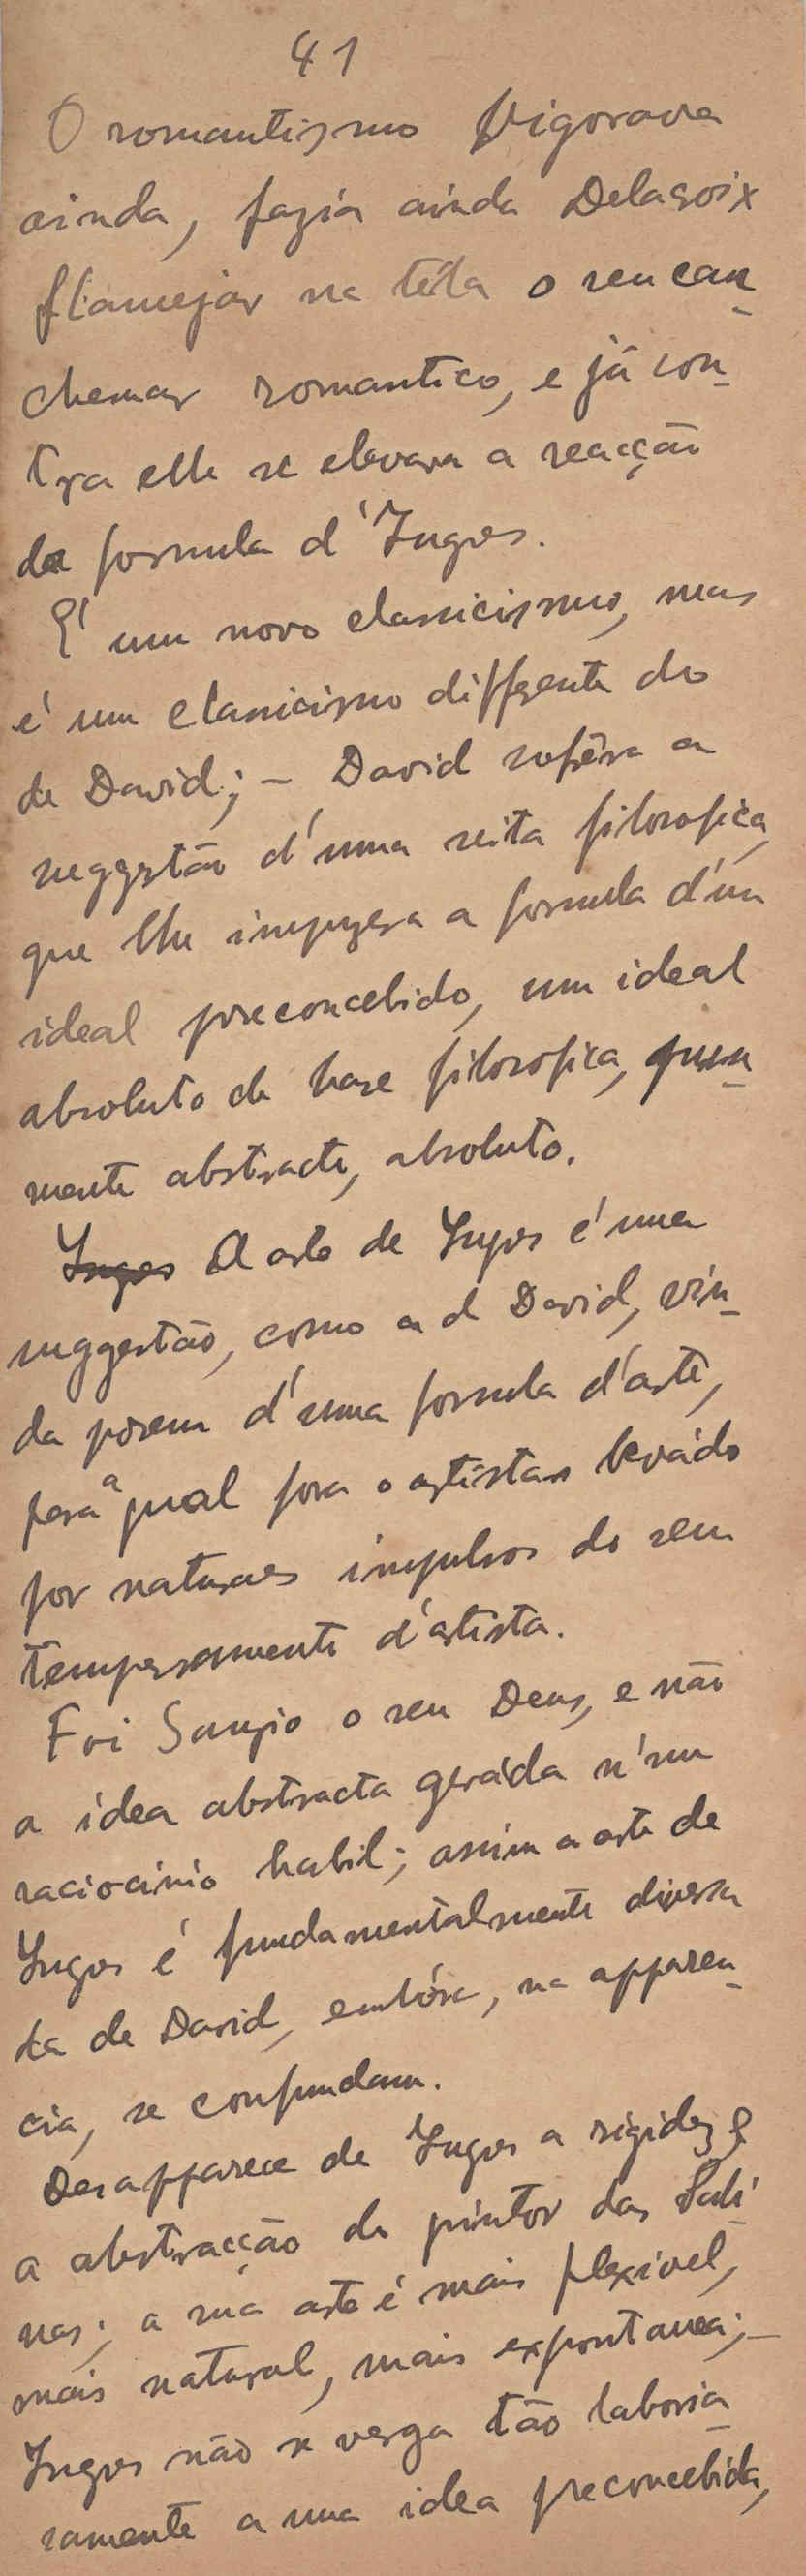 41
O romantismo vigorava
ainda, fazia ainda Delacroix
flamejar na téla o seu can-
chemar romantico, e já con-
tra elle se elevava a reacção
da formula d'Ingres.
É um novo classicismo, mas
é um classicismo differente do
de David; – David sofrêra a
suggestão d'uma seita filosofica,
que lhe impuzera a formula d'um
ideal preconcebido, um ideal
absoluto de base filosofica, pura-
mente abstracto, absoluto.
Ingres A arte de Ingres é uma
suggestão, como a d David, vin-
da porem d'uma formula d'arte,
para a qual fora o artista levádo
por naturaes impulsos do seu
temperamento d'artista.
Foi Sanzio o seu Deus, e não
a idea abstracta geráda n'um
raciocinio habil; assim a arte de
Ingres é fundamentalmente diversa
da de David, embóra, na apparen-
cia, se confundam.
Desapparece de Ingres a rigidez e
a abstracção do pintor das Sabi-
nas; a sua arte é mais flexivel,
mais natural, mais expontanea; –
Ingres não se verga tão laborio-
samente a uma idea preconcebida,